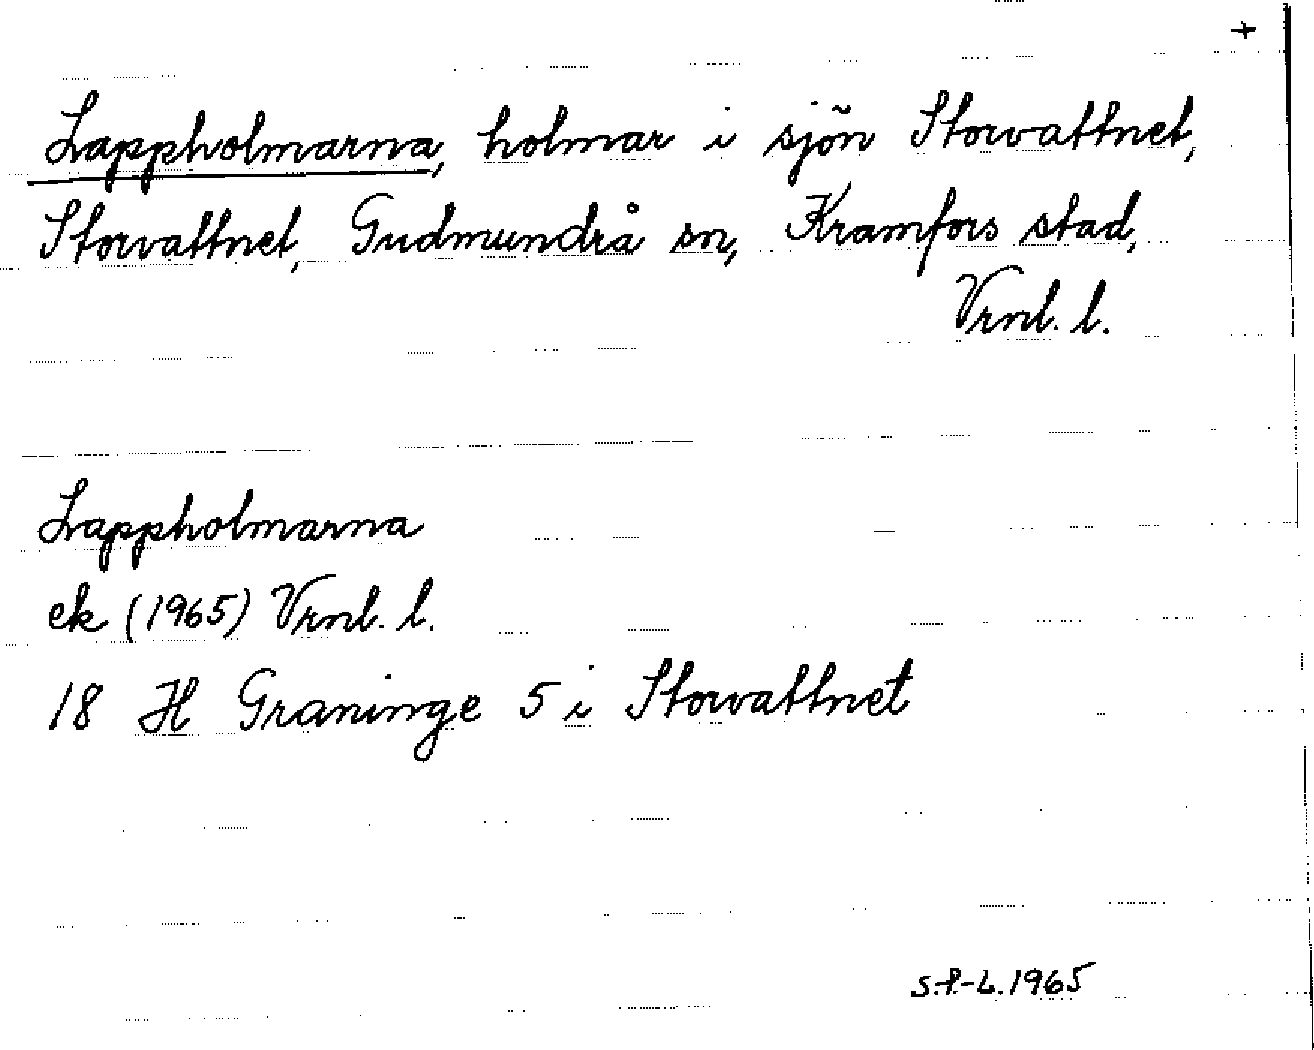 +
Lappholmarna, holmar i sjön Storvattnet,
Storvattnet, Gudmundrå sn, Kramfors stad,
Vrnl. l.
Lappholmarna
ek (1965) Vrnl. l.
18 H Graninge 5 i Storvattnet
S.P-L. 1965